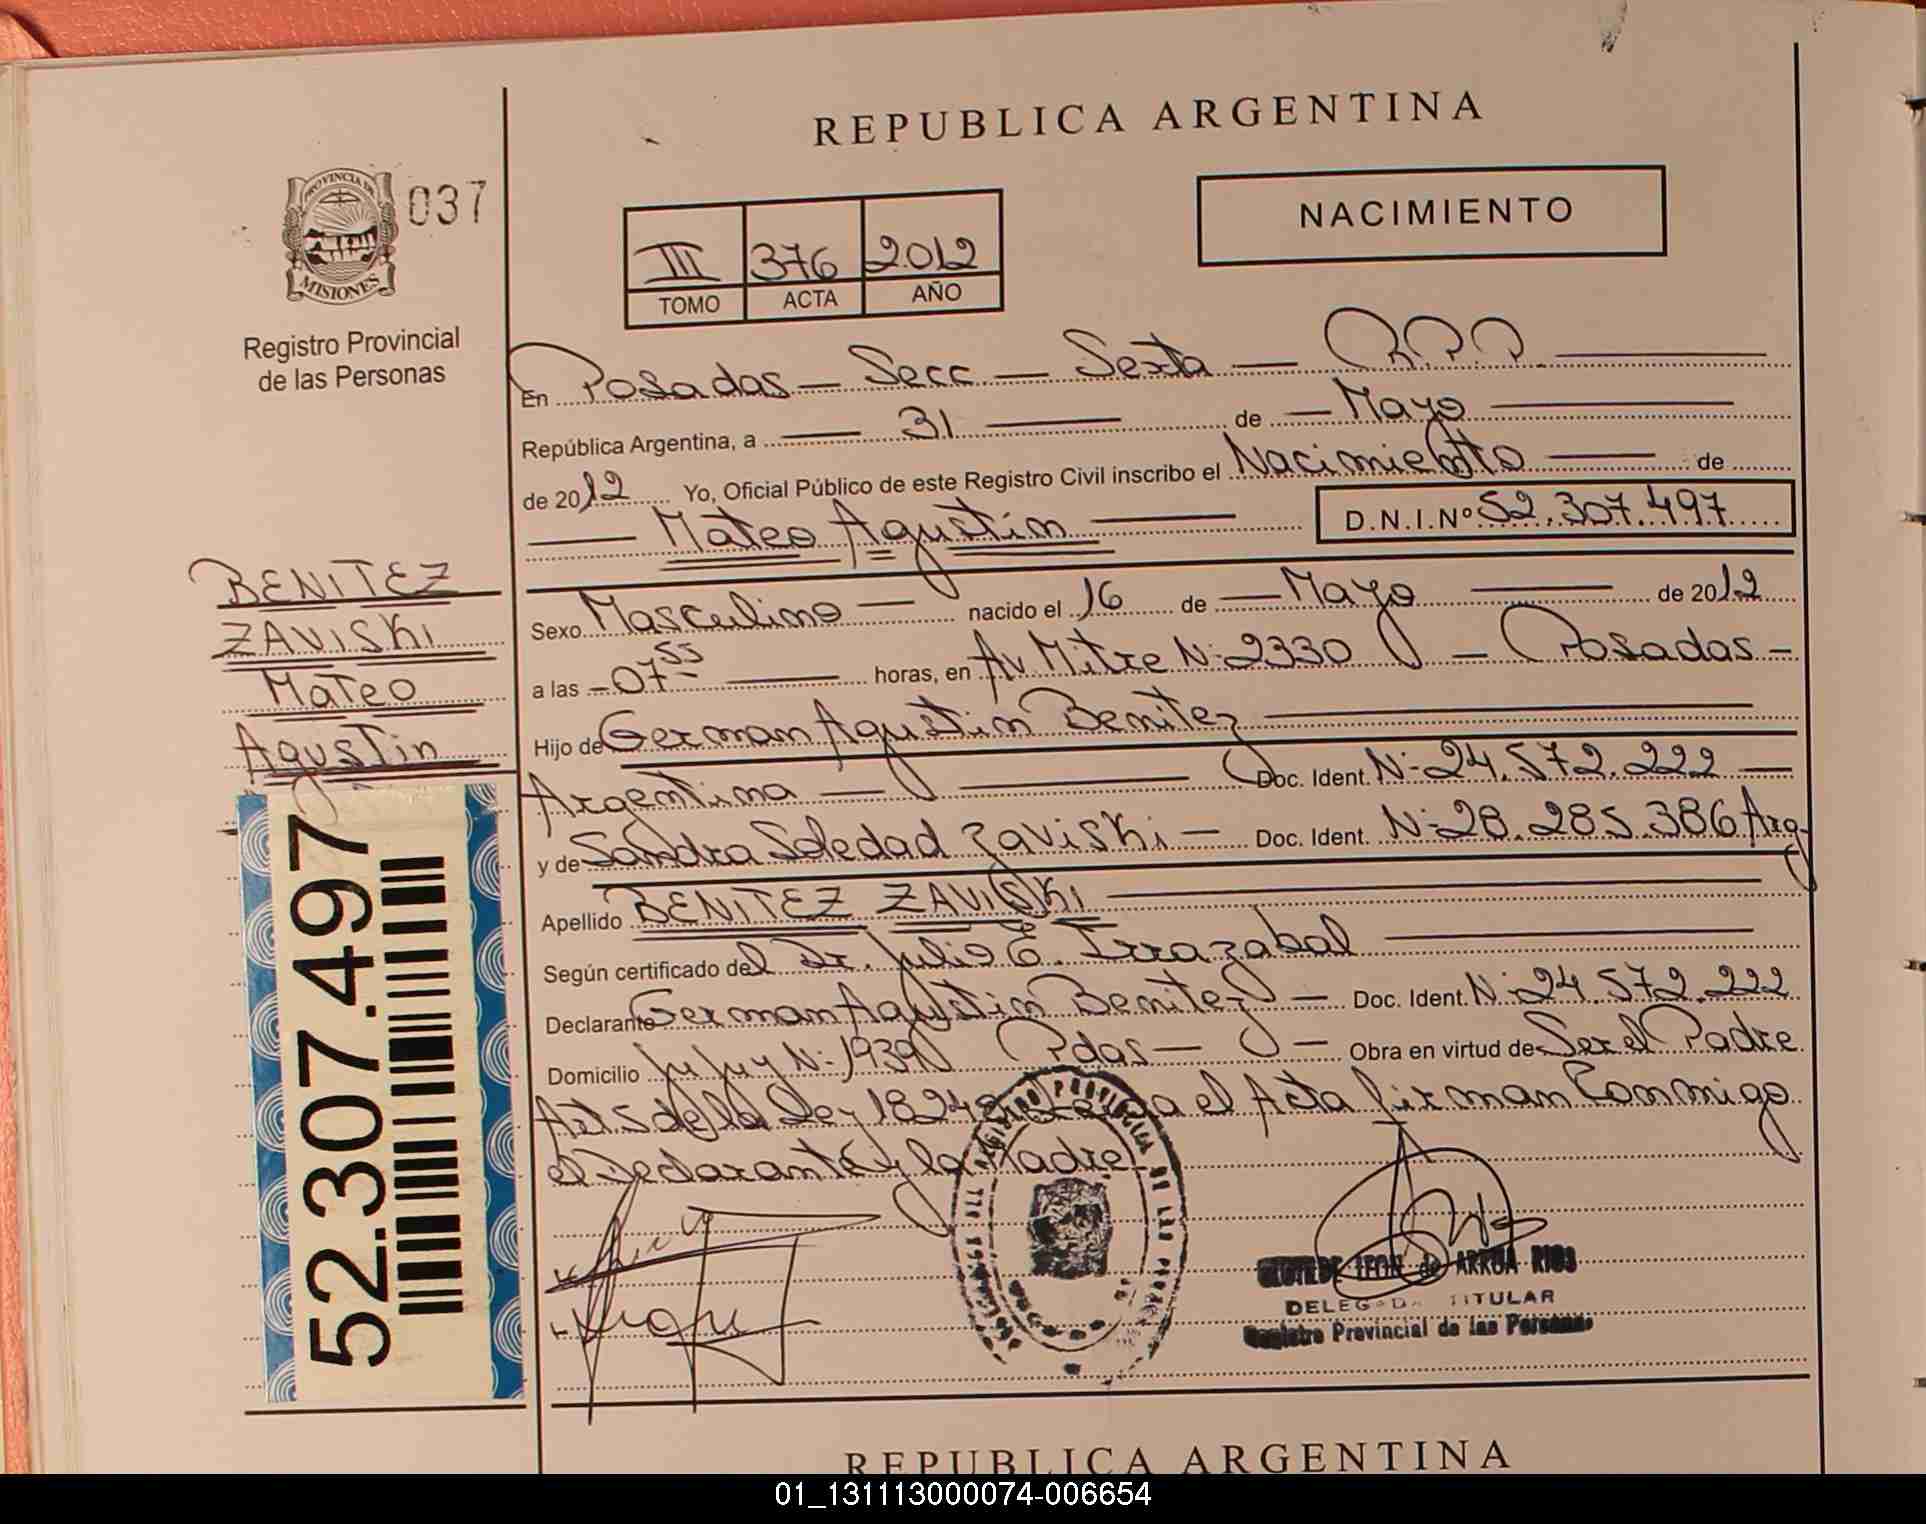 REPUBLICA ARGENTINA
PROVINCIA DE
MISIONES
037
Registro Provincial
de las Personas
NACIMIENTO
III 376 2012
TOMO ACTA AÑO
En Posadas - Secc - Sexta - R.P.P.
República Argentina, a 31 de Mayo
de 2012 Yo, Oficial Público de este Registro Civil inscribo el Nacimiento de
Mateo Agustin D.N.I.Nº 52.307.497
BENITEZ
ZAVISKI
Mateo
Agustin
Sexo Masculino nacido el 16 de Mayo de 2012
a las 07 55 horas, en Av Mitre N: 2330 - Posadas -
Hijo de German Agustin Benitez
Argentina Doc. Ident. N: 24.572.222
y de Sandra Soledad Zaviski - Doc. Ident. N: 28.285.386 Arg
Apellido BENITEZ ZAVISKI
Según certificado del Dr. Julio E. Irrazabal
Declarante German Agustin Benitez - Doc. Ident. N: 24.572.222
Domicilio Jujuy N: 1939 Pdas - Obra en virtud de Ser el Padre
Art 5 de la Ley 18248 el Acta firman Conmigo
el Declarante y la Madre
52.307.497
LEON de ARRUA RIOS
DELEGADA TITULAR
Registro Provincial de las Personas
REPUBLICA ARGENTINA
01_131113000074-006654